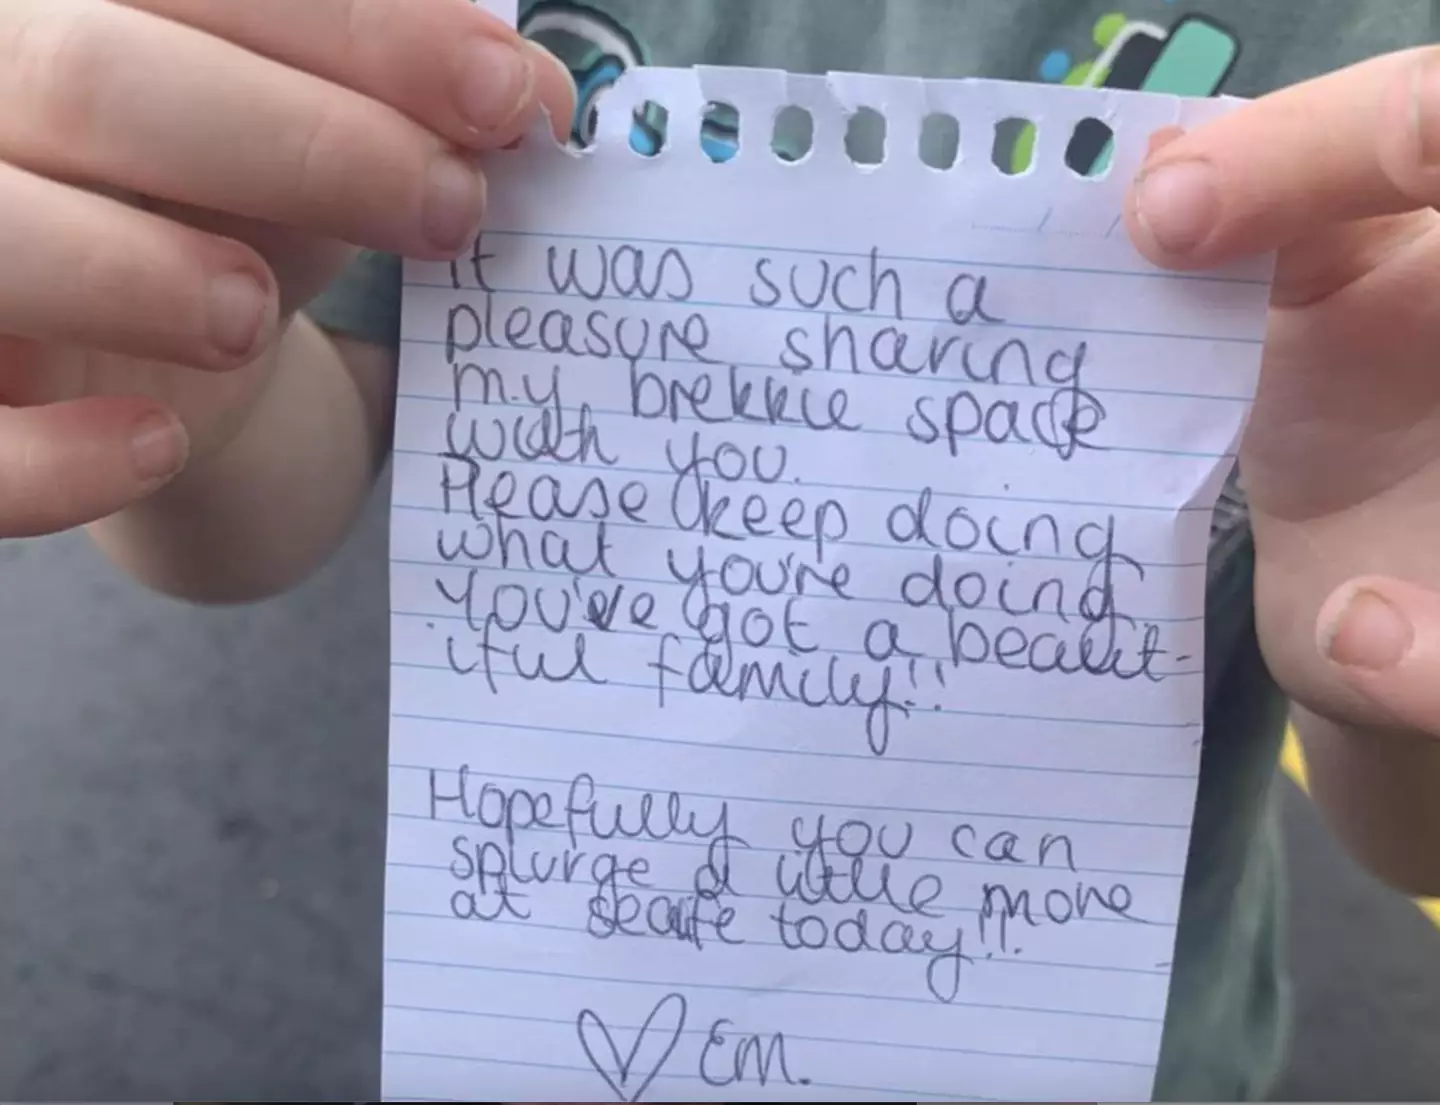 It was such a
pleasure sharing
my brekkie space
with you.
Please keep doing
what you're doing
You've got a beaut-
iful family!!
Hopefully you can
splurge a little more
at today!!
Em.